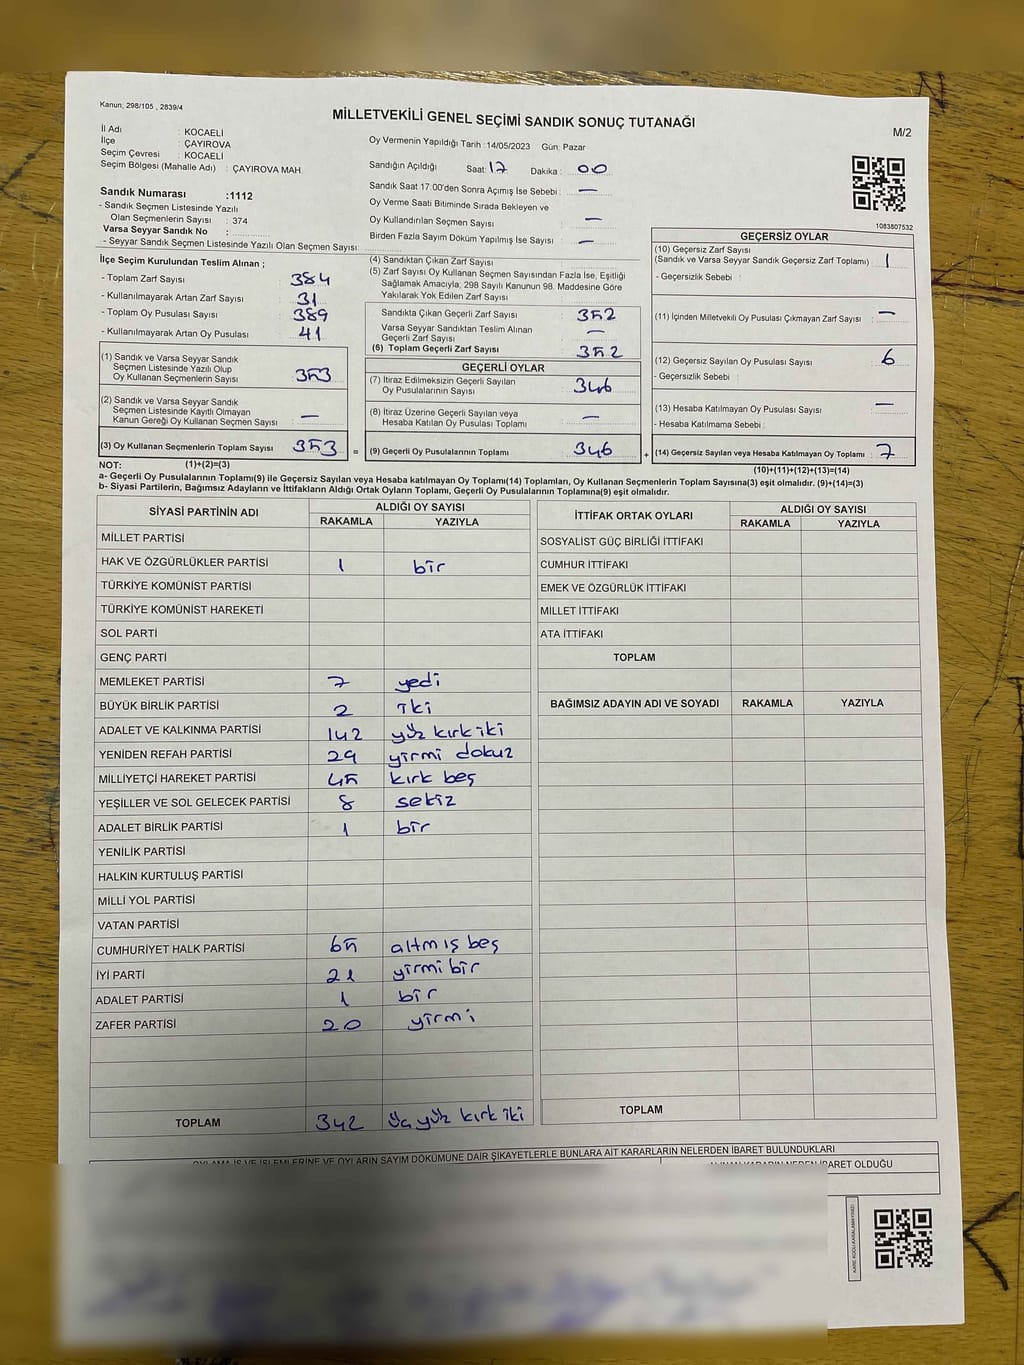 Kanun, 298/105 , 2839/4
MİLLETVEKİLİ GENEL SEÇİMİ SANDIK SONUÇ TUTANAĞI
M/2
İl Adı : KOCAELİ
İlçe : ÇAYIROVA
Seçim Çevresi : KOCAELİ
Seçim Bölgesi (Mahalle Adı) : ÇAYIROVA MAH.
Oy Vermenin Yapıldığı Tarih :14/05/2023 Gün: Pazar
Sandığın Açıldığı Saat: 17 Dakika : 00
Sandık Saat 17:00'den Sonra Açımış İse Sebebi : —
Oy Verme Saati Bitiminde Sırada Bekleyen ve
Oy Kullandırılan Seçmen Sayısı —
Birden Fazla Sayım Döküm Yapılmış İse Sayısı : —
Sandık Numarası :1112
- Sandık Seçmen Listesinde Yazılı
Olan Seçmenlerin Sayısı : 374
Varsa Seyyar Sandık No :
- Seyyar Sandık Seçmen Listesinde Yazılı Olan Seçmen Sayısı:
1083807532
İlçe Seçim Kurulundan Teslim Alınan ;
- Toplam Zarf Sayısı 384
- Kullanılmayarak Artan Zarf Sayısı 31
- Toplam Oy Pusulası 389
- Kullanılmayarak Artan Oy Pusulası 41
(1) Sandık ve Varsa Seyyar Sandık
Seçmen Listesinde Yazılı Olup
Oy Kullanan Seçmenlerin Sayısı 353
(2) Sandık ve Varsa Seyyar Sandık
Seçmen Listesinde Kayıtlı Olmayan
Kanun Gereği Oy Kullanan Seçmen Sayısı —
(3) Oy Kullanan Seçmenlerin Toplam Sayısı 353 =
(4) Sandıktan Çıkan Zarf Sayısı
(5) Zarf Sayısı Oy Kullanan Seçmen Sayısından Fazla İse, Eşitliği
Sağlamak Amacıyla, 298 Sayılı Kanunun 98. Maddesine Göre
Yakılarak Yok Edilen Zarf Sayısı
Sandıkta Çıkan Geçerli Zarf Sayısı 352
Varsa Seyyar Sandıktan Teslim Alınan
Geçerli Zarf Sayısı —
(6) Toplam Geçerli Zarf Sayısı 352
GEÇERLİ OYLAR
(7) İtiraz Edilmeksizin Geçerli Sayılan
Oy Pusulalarının Sayısı 346
(8) İtiraz Üzerine Geçerli Sayılan veya
Hesaba Katılan Oy Pusulası Toplamı —
(9) Geçerli Oy Pusulalarının Toplamı 346 +
GEÇERSİZ OYLAR
(10) Geçersiz Zarf Sayısı
(Sandık ve Varsa Seyyar Sandık Geçersiz Zarf Toplamı) 1
- Geçersizlik Sebebi :
(11) İçinden Milletvekili Oy Pusulası Çıkmayan Zarf Sayısı —
(12) Geçersiz Sayılan Oy Pusulası Sayısı 6
- Geçersizlik Sebebi :
(13) Hesaba Katılmayan Oy Pusulası Sayısı —
- Hesaba Katılmama Sebebi :
(14) Geçersiz Sayılan veya Hesaba Katılmayan Oy Toplamı : 7
NOT: (1)+(2)=(3) (10)+(11)+(12)+(13)=(14)
a- Geçerli Oy Pusulalarının Toplamı(9) ile Geçersiz Sayılan veya Hesaba katılmayan oy Toplamı(14) Toplamları, Oy Kullanan Seçmenlerin Toplam Sayısına(3) eşit olmalıdır. (9)+(14)=(3)
b- Siyasi Partilerin, Bağımsız Adayların ve İttifakların Aldığı Ortak Oyların Toplamı, Geçerli Oy Pusulalarının Toplamına(9) eşit olmalıdır.
SİYASİ PARTİNİN ADI ALDIĞI OY SAYISI
RAKAMLA YAZIYLA
MİLLET PARTİSİ
HAK VE ÖZGÜRLÜKLER PARTİSİ 1 bir
TÜRKİYE KOMÜNİST PARTİSİ
TÜRKİYE KOMÜNİST HAREKETİ
SOL PARTİ
GENÇ PARTİ
MEMLEKET PARTİSİ 7 yedi
BÜYÜK BİRLİK PARTİSİ 2 iki
ADALET VE KALKINMA PARTİSİ 142 yüz kırk iki
YENİDEN REFAH PARTİSİ 29 yirmi dokuz
MİLLİYETÇİ HAREKET PARTİSİ 45 kırk beş
YEŞİLLER VE SOL GELECEK PARTİSİ 8 sekiz
ADALET BİRLİK PARTİSİ 1 bir
YENİLİK PARTİSİ
HALKIN KURTULUŞ PARTİSİ
MİLLİ YOL PARTİSİ
VATAN PARTİSİ
CUMHURİYET HALK PARTİSİ 65 altmış beş
İYİ PARTİ 21 yirmi bir
ADALET PARTİSİ 1 bir
ZAFER PARTİSİ 20 yirmi
TOPLAM 342 üç yüz kırk iki
İTTİFAK ORTAK OYLARI ALDIĞI OY SAYISI
RAKAMLA YAZIYLA
SOSYALİST GÜÇ BİRLİĞİ İTTİFAKI
CUMHUR İTTİFAKI
EMEK VE ÖZGÜRLÜK İTTİFAKI
MİLLET İTTİFAKI
ATA İTTİFAKI
TOPLAM
BAĞIMSIZ ADAYIN ADI VE SOYADI RAKAMLA YAZIYLA
TOPLAM
OYLAMA İŞ VE İŞLEMLERİNE VE OYLARIN SAYIM DÖKÜMÜNE DAİR ŞİKAYETLERLE BUNLARA AİT KARARLARIN NELERDEN İBARET BULUNDUKLARI
ALINAN KARARIN NEDEN İBARET OLDUĞU